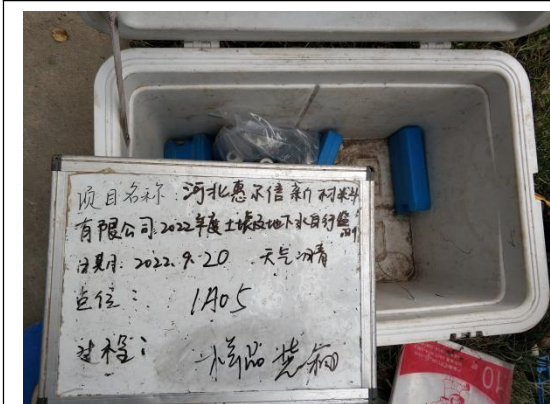 项目名称:河北惠尔信新材料
有限公司2022年度土壤及地下水自行监测
日期:2022.9.20 天气:晴
点位: 1A05
过程: 样品装箱
10